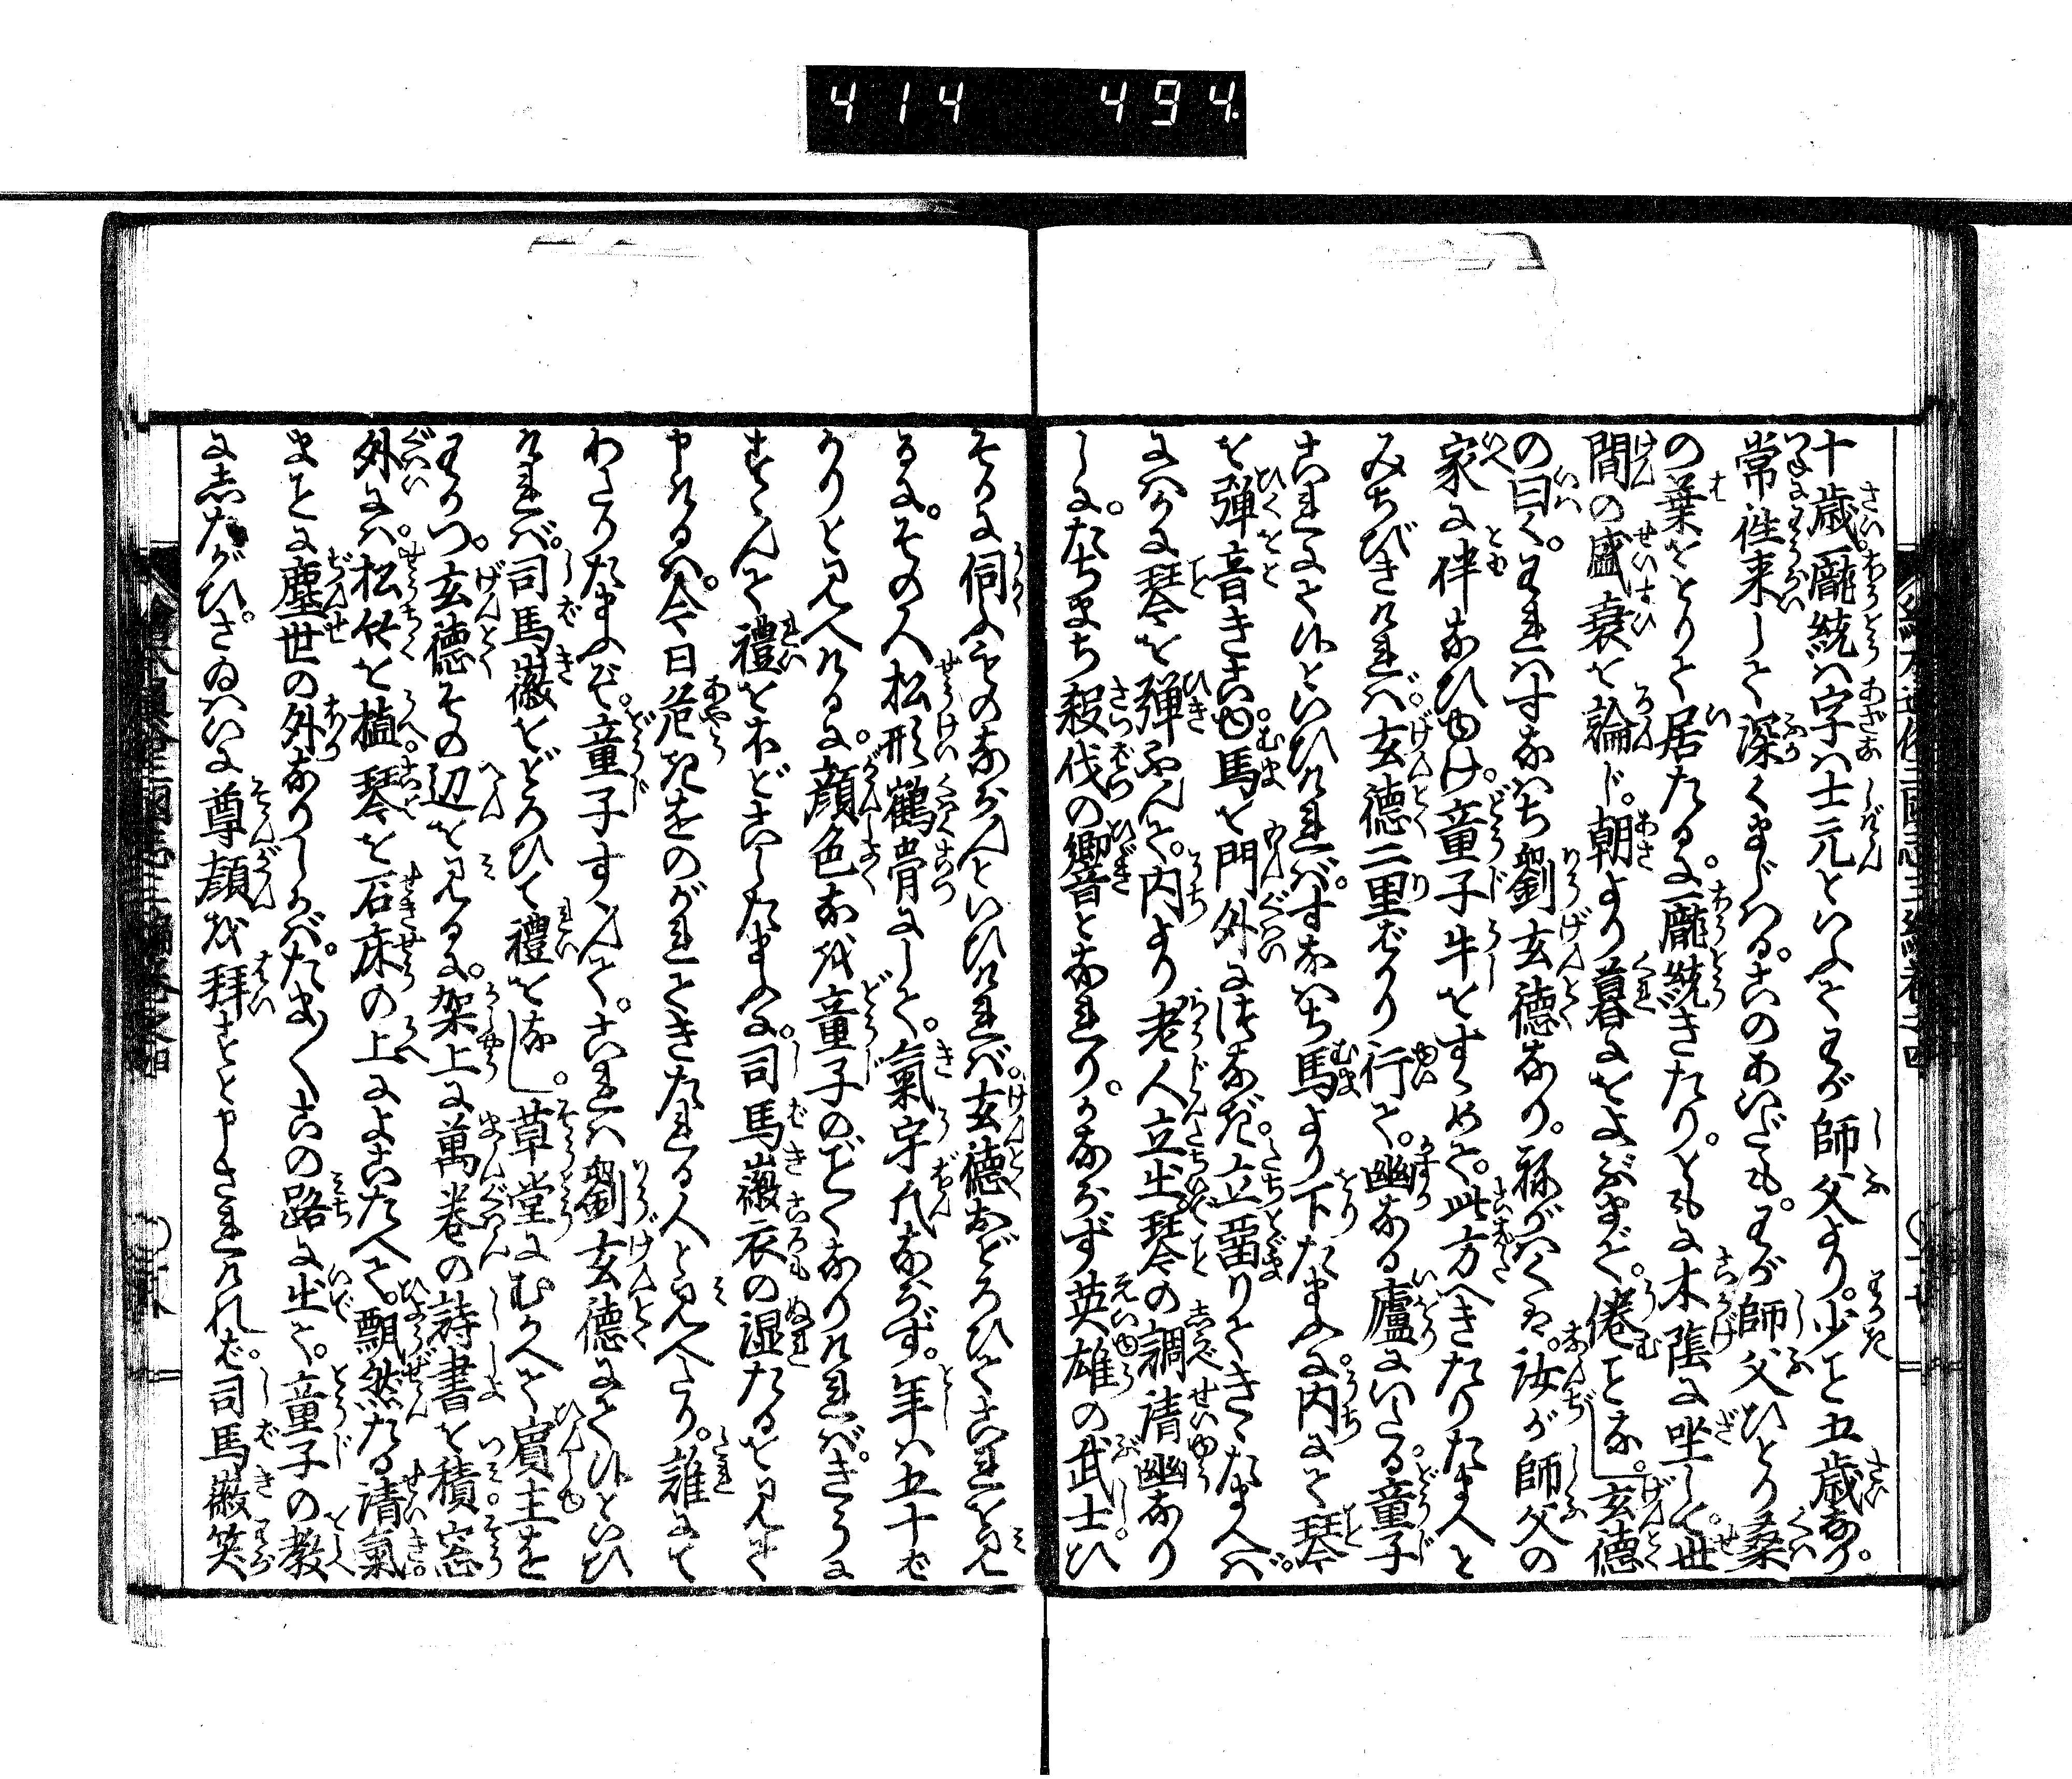 414 494
十歳龐統ハ字ハ士元といふてわが師父より少こと五歳なり。
常に徃来して深くまじハる。このあいだも。わが師父ひとり桑
の葉をとりて居たるに。龐統きたり。ともに木蔭に坐して。世
間の盛衰を論じ。朝より暮におよぶまで。倦ことなし。玄徳
の曰く。われハすなハち劉玄徳なり。ねがハくハ。汝が師父の
家に伴なひゆけ。童子牛をすゝめて。此方へきたりたまへと
みちびきければ。玄徳二里ばかり行て。幽なる廬にいたる。童子
これにて候といひければ。すなハち馬より下たまふに。内にて琴
を弾音きこゆ。馬を門外につなぎ。立畄りてきゝたまへば。
にハかに琴を弾やんで。内より老人立出。琴の調清幽なり
しに。たちまち殺伐の響となれり。かならず英雄の武士ひ
そかに伺ふものならんといひければ。玄徳おどろひてこれを見
るに。その人松形鶴骨にして。氣宇凡ならず。年ハ五十ば
かりと見へけるに。顔色なを童子のごとくなりければ。ぎように
すゝんで禮をほどこしたまふに。司馬徽衣の湿たるを見て
申けるハ。今日危きをのがれてきたれる人と見へたり。誰にて
わたりたまふぞ。童子すゝんで。これハ劉玄徳にて候といひ
ければ。司馬徽おどろひて禮をなし。草堂にむかへて賓主を
わかつ。玄徳その辺を見るに。架上に萬巻の詩書を積。窓
外にハ。松竹を植。琴を石床の上によこたへて。飄然たる清氣
まことに塵世の外なりしかバ。たま〱この路に出て。童子の教
にしたがひ。さゐハいに尊顔を拜すと申されけれバ。司馬徽笑